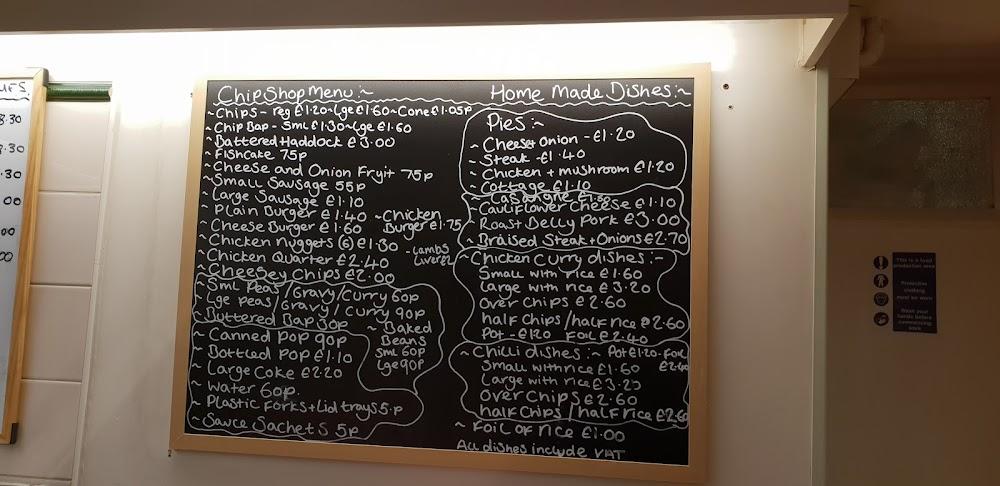 URS.
8.30
8.30
.30
00
00
00
Chip Shop Menu :~
~ Chips - reg £1.20 ~ Lge £1.60 ~ Cone £1.05p
~ Chip Bap - Sml £1.30 ~ Lge £1.60
~ Battered Haddock £3.00
~ Fishcake 75p
~ Cheese and Onion Fryit 75p
~ Small Sausage 55p
~ Large Sausage £1.10
~ Plain Burger £1.40
~ Cheese Burger £1.60
~ Chicken Nuggets (6) £1.30
~ Chicken Quarter £2.40
~ Cheesey Chips £2.00
~ Chicken
Burger £1.75
- Lambs
Liver £1
~ Sml Peas/Gravy/Curry 60p
~ Lge Peas/Gravy/Curry 90p
~ Buttered Bap 30p
~ Baked
Beans
Sml 60p
Lge 90p
~ Canned Pop 90p
~ Bottled Pop £1.10
~ Large Coke £2.20
~ Water 60p.
~ Plastic Forks + Lid trays 5.p
~ Sauce Sachets 5p
Home Made Dishes :~
Pies :~
~ Cheese + Onion - £1.20
~ Steak - £1.40
~ Chicken + mushroom £1.20
~ Cottage £1.10
~ Lasagne
~ Cauliflower Cheese £1.10
~ Roast Belly Pork £3.00
~ Braised Steak + Onions £2.70
~ Chicken Curry dishes :-
Small with rice £1.60
Large with rice £3.20
Over chips £2.60
half chips/half rice £2.60
Pot - £1.20 Foil £2.40
~ Chilli dishes :~ Pot £1.20 - Foil
£2.40
Small with rice £1.60
Large with rice £3.20
Over chips £2.60
half chips/half rice £2.60
~ Foil of rice £1.00
All dishes include VAT
This is a food
production area
Protective
clothing
must be worn
Wash your
hands before
commencing
work